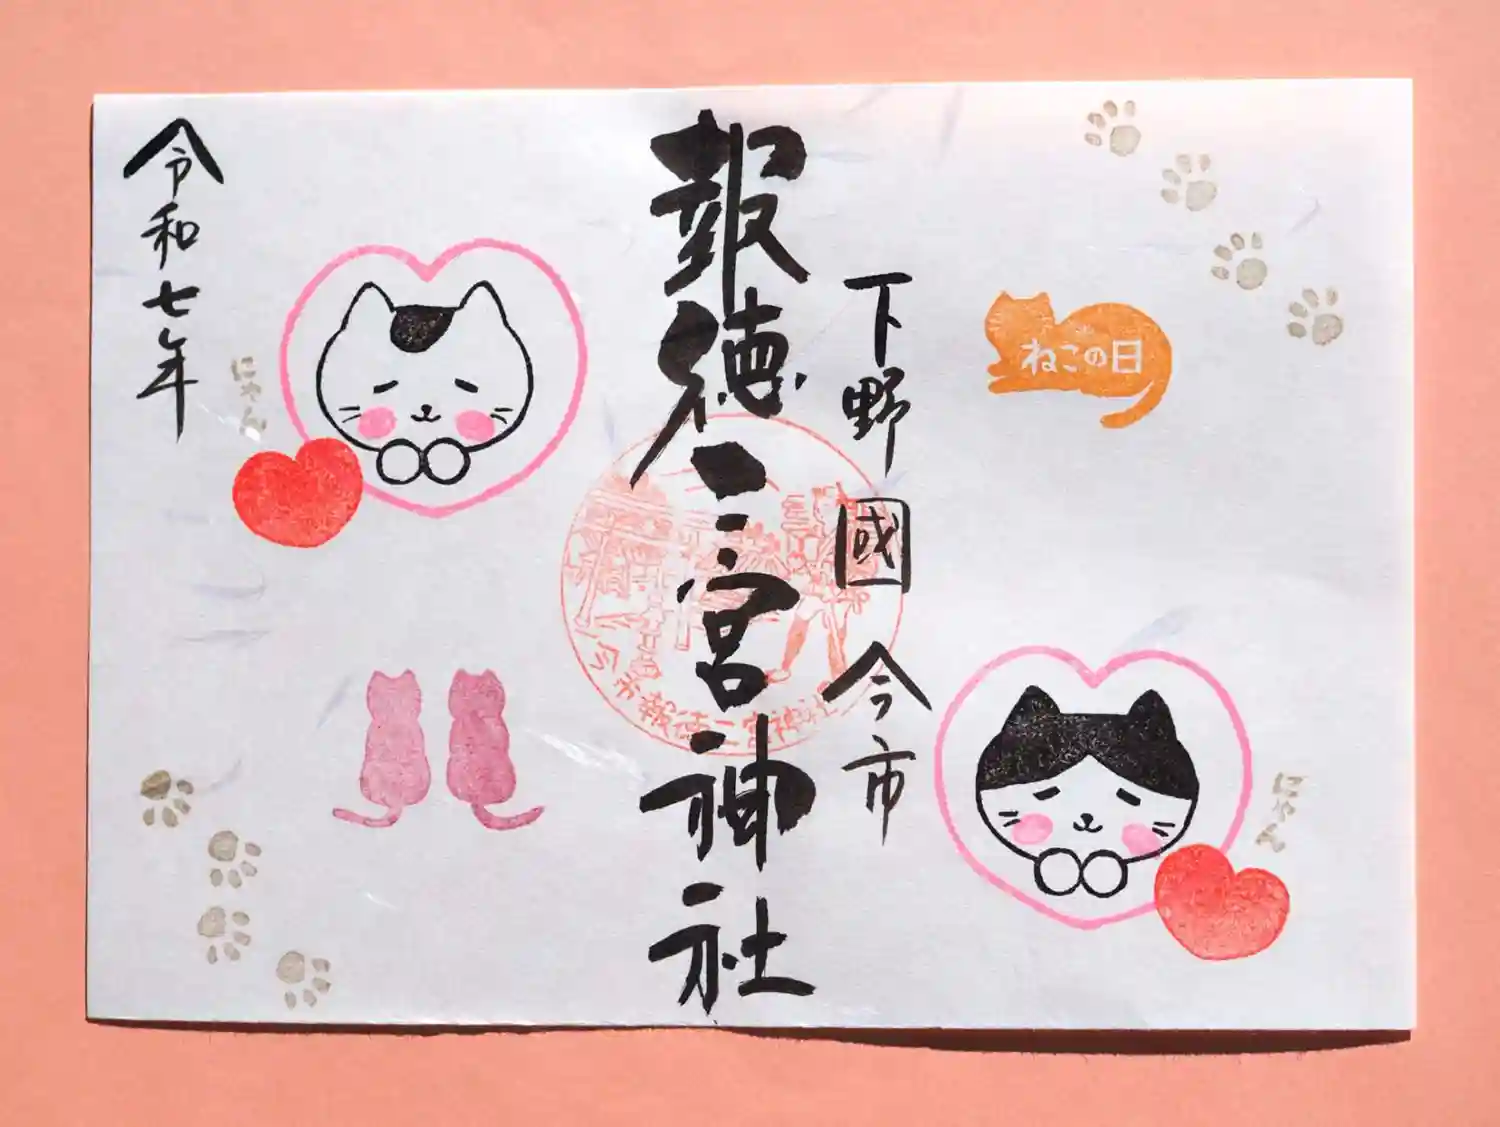 下野國今市
報徳二宮神社
令和七年
ねこの日
にゃん
にゃん
今市報徳二宮神社